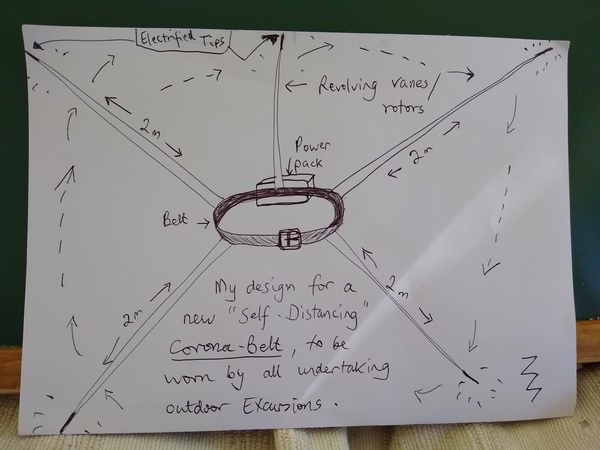 Electrified Tips
Revolving vanes/
rotors
2m
2m
Power
pack
Belt
2m
2m
My design for a
new "Self-Distancing"
Corona-Belt, to be
worn by all undertaking
outdoor Excursions.